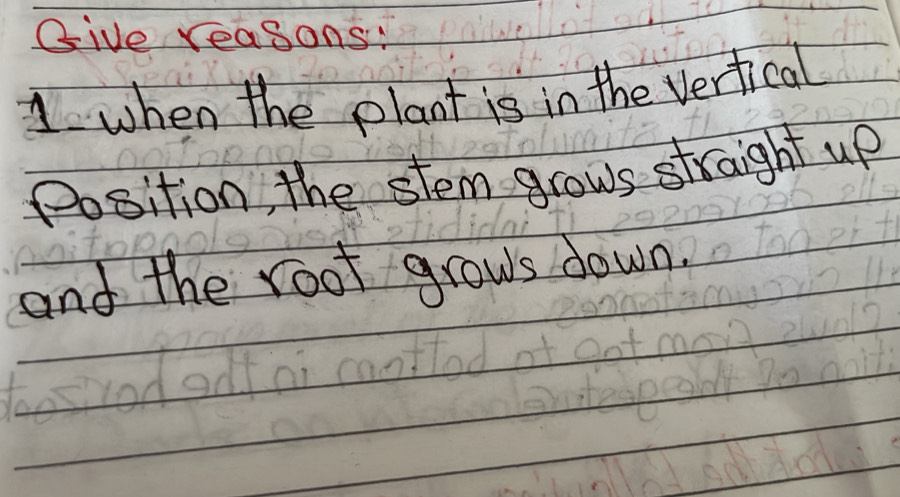 Give reasons:
1- when the plant is in the vertical
Position, the stem grows straight up
and the root grows down.